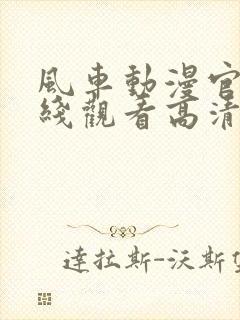 風車動漫官
綫觀看高清
達拉斯-沃斯堡